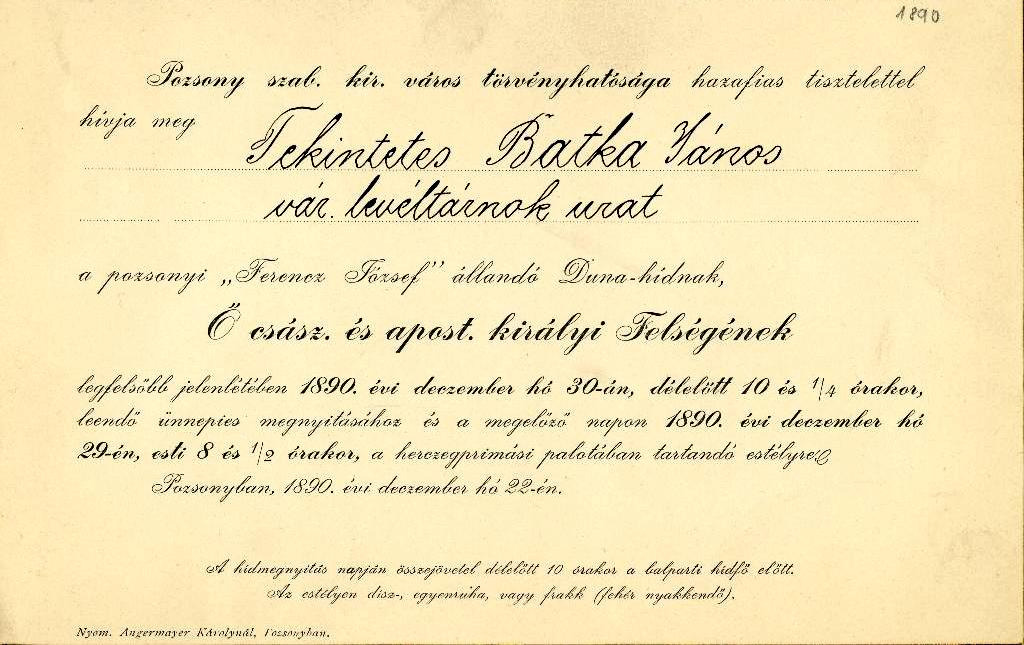 1890
Pozsony szab. kir. város törvényhatósága hazafias tisztelettel
hívja meg
Tekintetes Batka János
vár. levéltárnok urat
a pozsonyi „Ferencz József” állandó Duna-hídnak,
Ő csász. és apost. királyi Felségének
legfelsőbb jelenlétében 1890. évi deczember hó 30-án, délelőtt 10 és 1/4 órakor,
leendő ünnepies megnyitásához és a megelőző napon 1890. évi deczember hó
29-én, esti 8 és 1/2 órakor, a herczegprimási palotában tartandó estélyre.
Pozsonyban, 1890. évi deczember hó 22-én.
A hídmegnyitás napján összejövetel délelőtt 10 órakor a balparti hídfő előtt.
Az estélyen disz-, egyenruha, vagy frakk (fehér nyakkendő).
Nyom. Angermayer Károlynál, Pozsonyban.